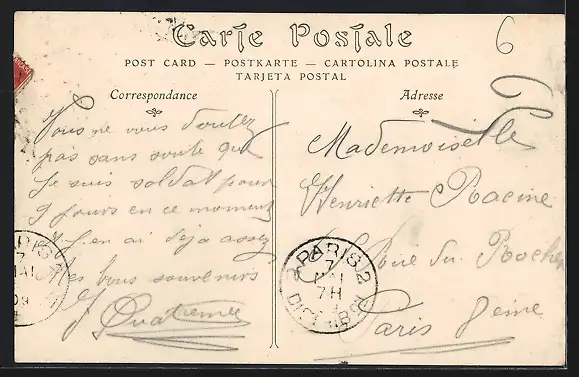 Carte Postale
POST CARD — POSTKARTE — CARTOLINA POSTALE
TARJETA POSTAL
6
Correspondance
Vous ne vous doutez
pas sans doute que
Je suis soldat pour
9 jours en ce moment
J'en ai déjà assez
Mes bons souvenirs
J. Quatremée
Adresse
Mademoiselle
Henriette Racine
Rue du Rocher
Paris Seine
PARIS 2
7
MAI
7H